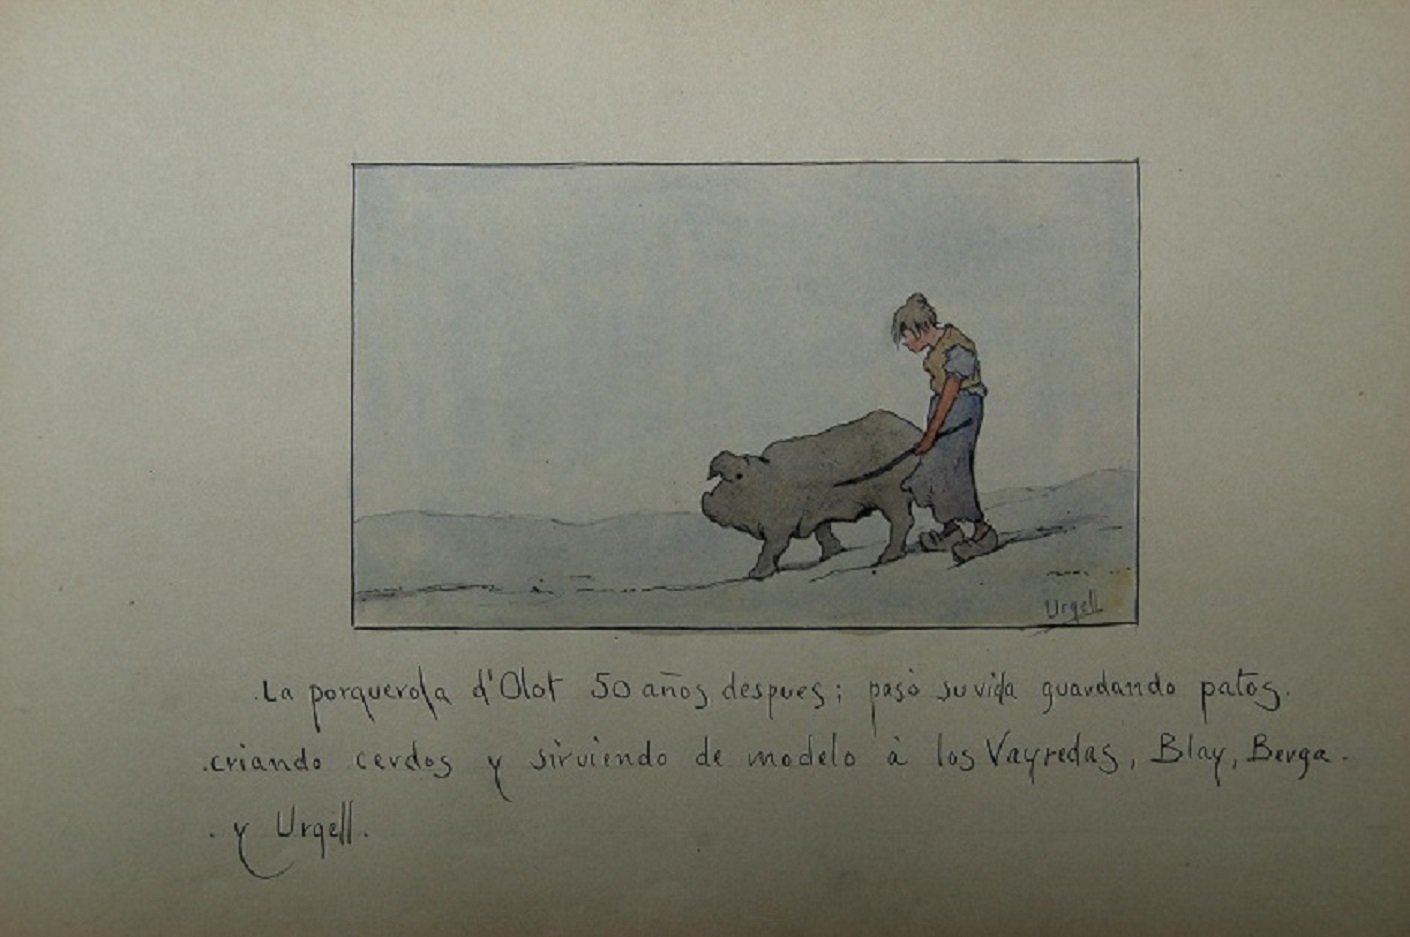 Urgell
La porquerola d'Olot 50 años despues; pasó su vida guardando patos.
criando cerdos y sirviendo de modelo à los Vayredas, Blay, Berga.
. y Urgell.